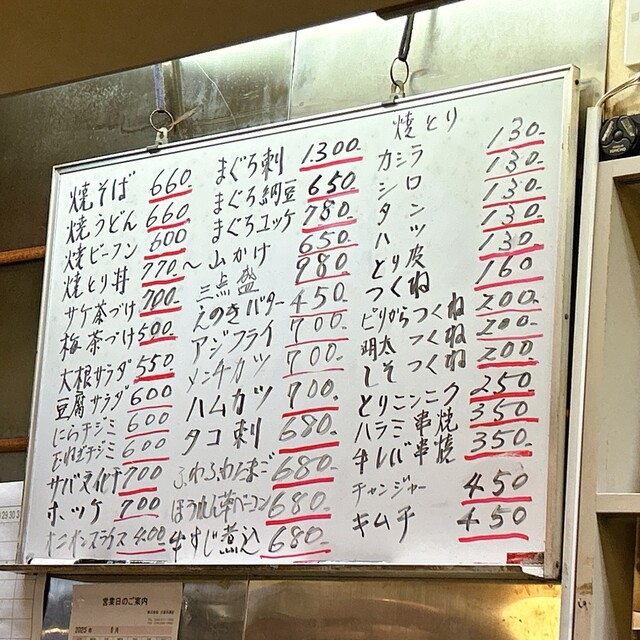 焼そば 660
焼うどん 660
焼ビーフン 600
焼とり丼 770〜
サケ茶づけ 700
梅茶づけ 500
大根サラダ 550
豆腐サラダ 600
にらチジミ 600
玉ねぎチジミ 600
サバ文化干 700
ホッケ 700
オニオンスライス 400
まぐろ刺 1300
まぐろ納豆 650
まぐろユッケ 780
山かけ 650
三点盛 980
えのきバター 450
アジフライ 700
メンチカツ 700
ハムカツ 700
タコ刺 680
ふわふわたまご 680
ほうれん草ベーコン 680
牛すじ煮込 680
焼とり
カシラ 130
シロ 130
タン 130
ハツ 130
とり皮 130
つくね 160
ピリからつくね 200
明太つくね 200
しそつくね 200
とりニンニク 250
ハラミ串焼 350
牛レバ串焼 350
チャンジャー 450
キムチ 450
営業日のご案内
2025年 8月